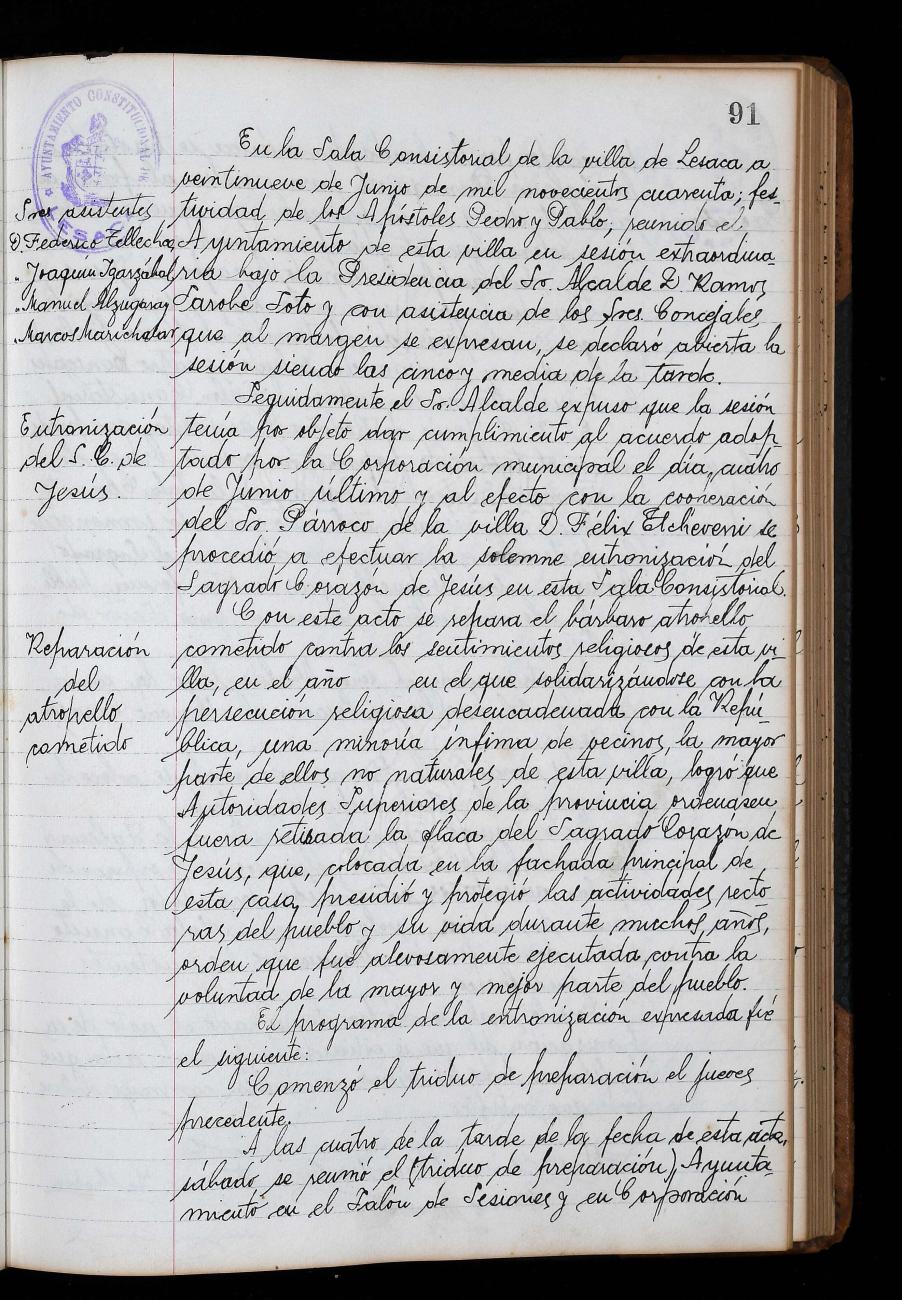 91
AYUNTAMIENTO CONSTITUCIONAL DE
LESACA
Sres. asistentes
D. Federico Tellechea
" Joaquín Igarzábal
" Manuel Alzugaray
" Marcos Marichalar
En la Sala Consistorial de la villa de Lesaca a
veintinueve de Junio de mil novecientos cuarenta; fes-
tividad de los Apóstoles Pedro y Pablo, reunido el
Ayuntamiento de esta villa en sesión extraordina-
ria bajo la Presidencia del Sr. Alcalde D. Ramos
Sarobe Soto y con asistencia de los Sres. Concejales
que al margen se expresan, se declaró abierta la
sesión siendo las cinco y media de la tarde.
Entronización
del S. C. de
Jesús.
Seguidamente el Sr. Alcalde expuso que la sesión
tenía por objeto dar cumplimiento al acuerdo adop-
tado por la Corporación municipal el día cuatro
de Junio último y al efecto con la cooperación
del Sr. Párroco de la villa D. Félix Etcheverri se
procedió a efectuar la solemne entronización del
Sagrado Corazón de Jesús en esta Sala Consistorial.
Reparación
del
atropello
cometido
Con este acto se repara el bárbaro atropello
cometido contra los sentimientos religiosos de esta vi-
lla, en el año en el que solidarizándose con la
persecución religiosa desencadenada con la Repú-
blica, una minoría ínfima de vecinos, la mayor
parte de ellos no naturales de esta villa, logró que
Autoridades Superiores de la provincia ordenasen
fuera retirada la placa del Sagrado Corazón de
Jesús, que, colocada en la fachada principal de
esta casa, presidió y protegió las actividades recto
ras del pueblo y su vida durante muchos años,
orden que fue alevosamente ejecutada contra la
voluntad de la mayor y mejor parte del pueblo.
El programa de la entronización expresada fué
el siguiente:
Comenzó el triduo de preparación el jueves
precedente.
A las cuatro de la tarde de la fecha de esta acta,
sábado se reunió el (triduo de preparación) Ayunta-
miento en el Salón de Sesiones y en Corporación